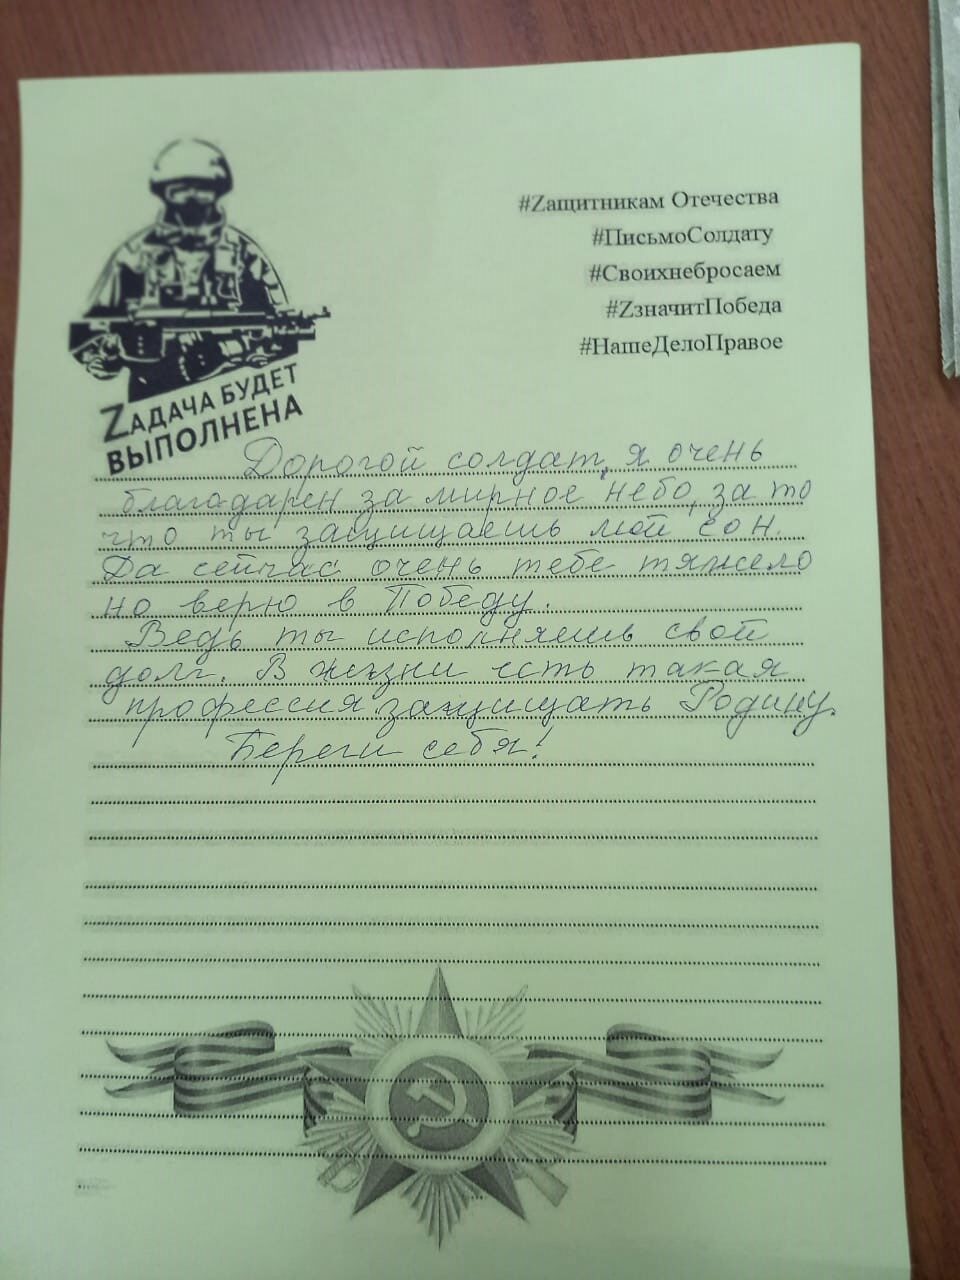 #Zащитникам Отечества
#ПисьмоСолдату
#Своихнебросаем
#ZзначитПобеда
#НашеДелоПравое
ZАДАЧА БУДЕТ
ВЫПОЛНЕНА
Дорогой солдат, я очень
благодарен за мирное небо, за то
что ты защищаешь мой сон.
Да сейчас очень тебе тяжело
но верю в Победу.
Ведь ты исполняешь свой
долг. В жизни есть такая
профессия защищать Родину.
Береги себя!